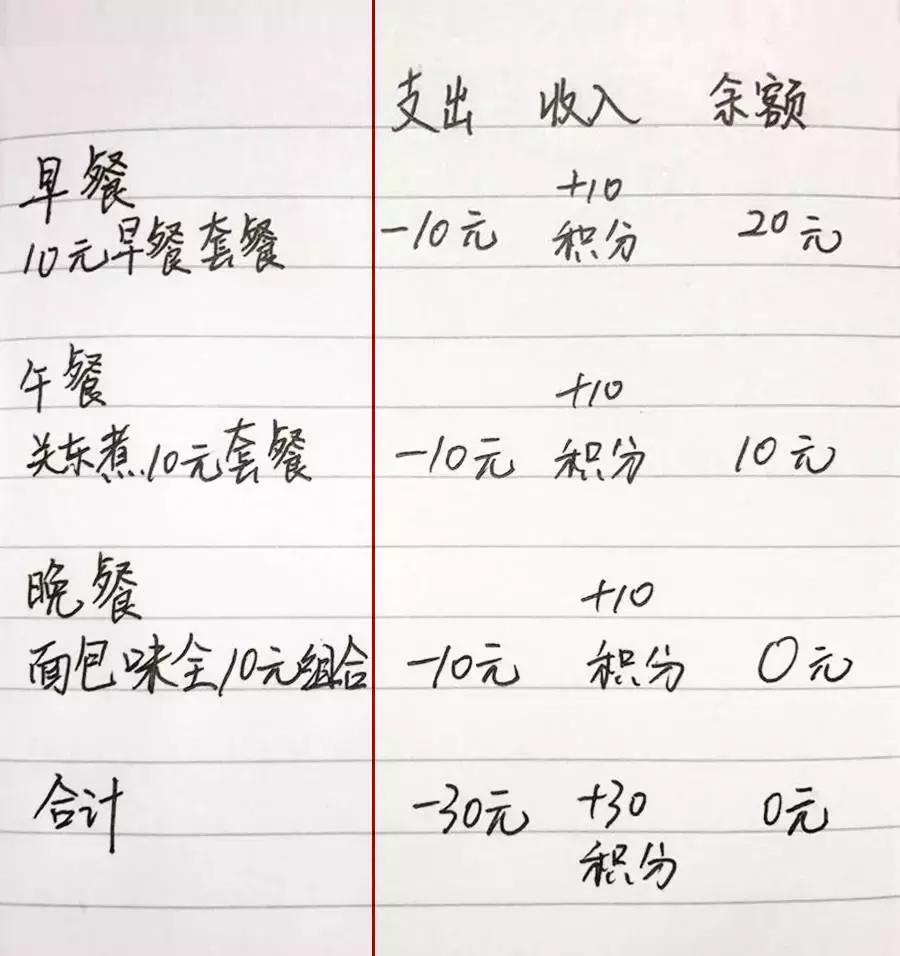 支出 收入 余额
早餐 +10
10元早餐套餐 -10元 积分 20元
午餐 +10
关东煮10元套餐 -10元 积分 10元
晚餐 +10
面包味全10元组合 -10元 积分 0元
合计 -30元 +30 0元
积分